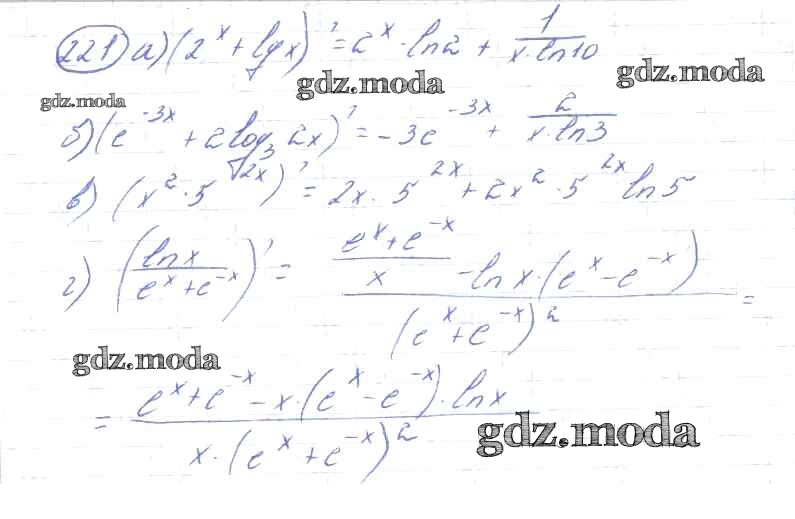 221 а) (2^x + lg x)' = 2^x · ln2 + 1/(x·ln10)
gdz.moda
gdz.moda
gdz.moda
б) (e^(-3x) + 2log_3 2x)' = -3e^(-3x) + 2/(x·ln3)
в) (x^2 · 5^(2x))' = 2x · 5^(2x) + 2x^2 · 5^(2x) ln5
г) (ln x/(e^x + e^(-x)))' = ((e^x + e^(-x))/x - ln x·(e^x - e^(-x)))/(e^x + e^(-x))^2 =
gdz.moda
= (e^x + e^(-x) - x·(e^x - e^(-x))·ln x)/(x·(e^x + e^(-x))^2)
gdz.moda